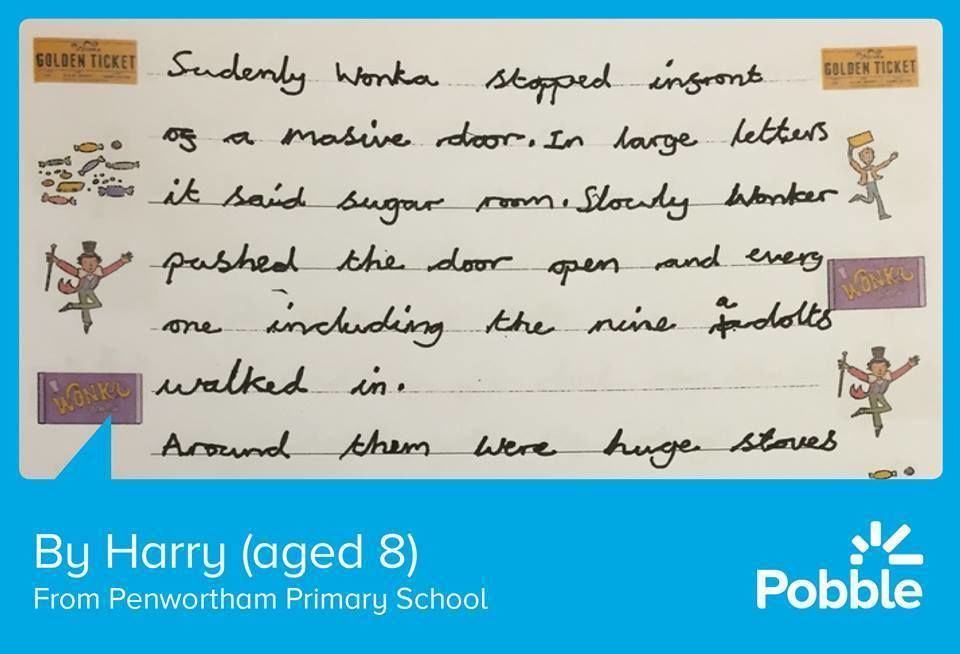 GOLDEN TICKET
GOLDEN TICKET
Sudenly Wonka stopped infront
of a masive door. In large letters
it said sugar room. Slowly Wonker
pushed the door open and every
one including the nine adolts
walked in.
Around them were huge stoves
WONKA
WONKA
By Harry (aged 8)
From Penwortham Primary School
Pobble